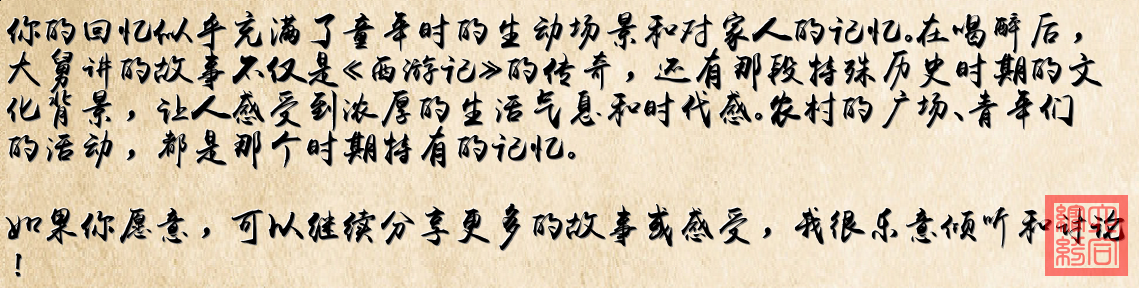 你的回忆似乎充满了童年时的生动场景和对家人的记忆。在喝醉后，
大舅讲的故事不仅是《西游记》的传奇，还有那段特殊历史时期的文
化背景，让人感受到浓厚的生活气息和时代感。农村的广场、青年们
的活动，都是那个时期特有的记忆。
如果你愿意，可以继续分享更多的故事或感受，我很乐意倾听和讨论
！